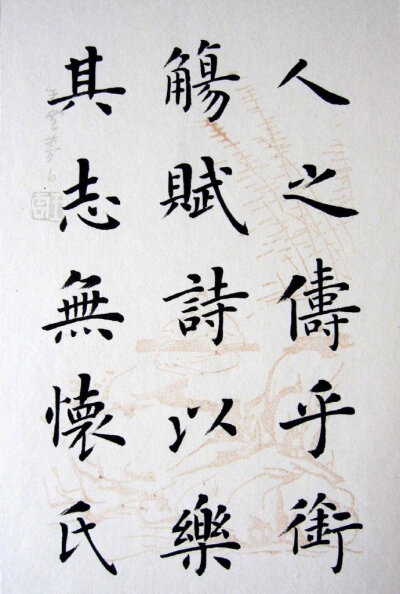 人之儔乎銜
觴賦詩以樂
其志無懷氏